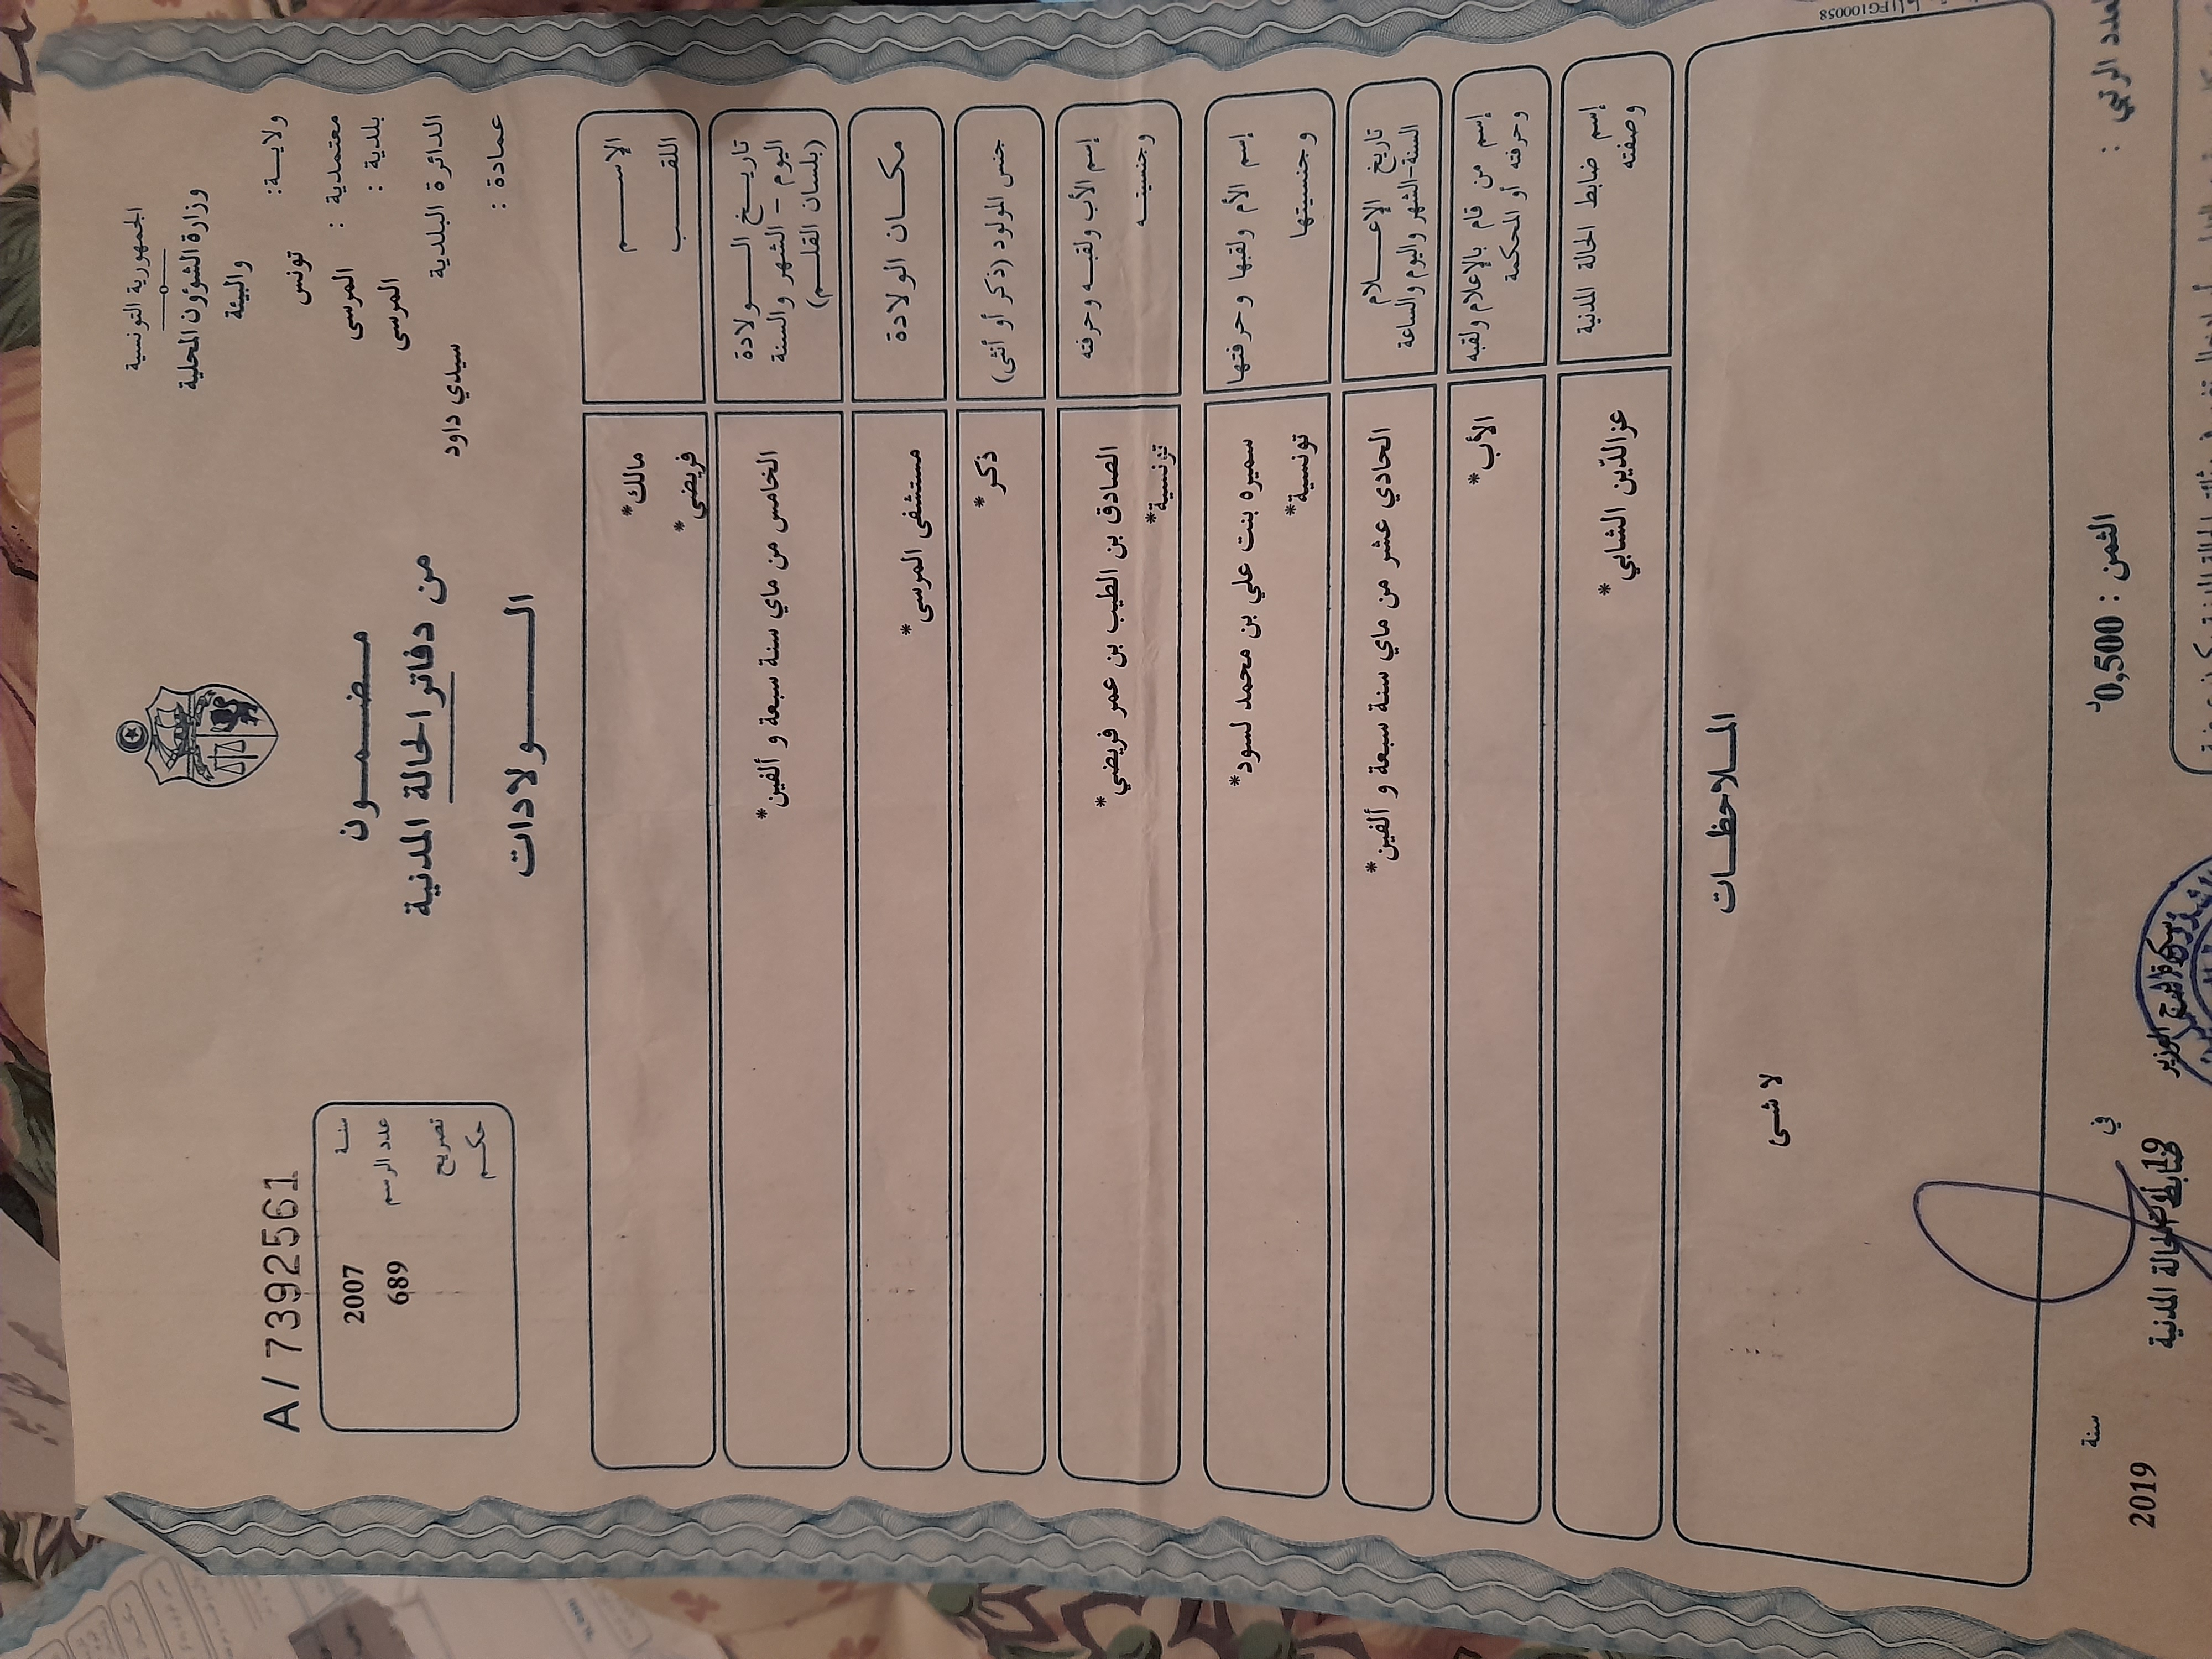 الجمهورية التونسية
وزارة الشؤون المحلية
والبيئة
ولايــة: تونس
معتمدية : المرسى
بلدية : المرسى
الدائرة البلدية
سيدي داود
عمادة :
مضمـــون
من دفاتر الحالة المدنية
الــــولادات
A/ 7392561
سنـة 2007
عدد الرسم 689
تصريح
حكـم
الإســــم مالك*
اللقــــب فريضي*
تاريــخ الـــولادة
اليوم - الشهر والسنة
(بلسان القلــم)
الخامس من ماي سنة سبعة و ألفين*
مكـــان الولادة مستشفى المرسى*
جنس المولود (ذكر أو أنثى) ذكر*
إسم الأب ولقبـه وحرفته الصادق بن الطيب بن عمر فريضي*
وجنسيتــه تونسية*
إسم الأم ولقبها وحرفتها سميره بنت علي بن محمد لسود*
وجنسيتها تونسية*
تاريخ الإعـــلام
السنة-الشهر واليوم والساعة
الحادي عشر من ماي سنة سبعة و ألفين*
إسم من قام بالإعلام ولقبه
وحرفته أو المحكمة
الأب*
إسم ضابط الحالة المدنية
وصفته
عزالدّين الشابي*
الملاحظــات
لا شى
العدد الرتبي :
الثمن : 0,500د
في
19
سنة
2019
ضابط الحالة المدنية